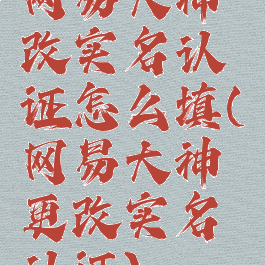 网易大神
改实名认
证怎么填(
网易大神
更改实名
认证)